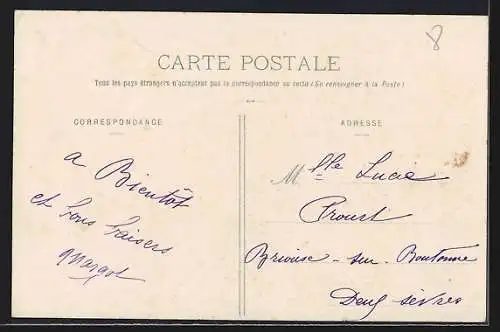 8
CARTE POSTALE
Tous les pays étrangers n'acceptent pas la correspondance au recto (Se renseigner à la Poste)
CORRESPONDANCE
a Bientôt
et bons baisers
Margot
ADRESSE
Mlle Lucie
Proust
Brioux-sur-Boutonne
Deux sèvres